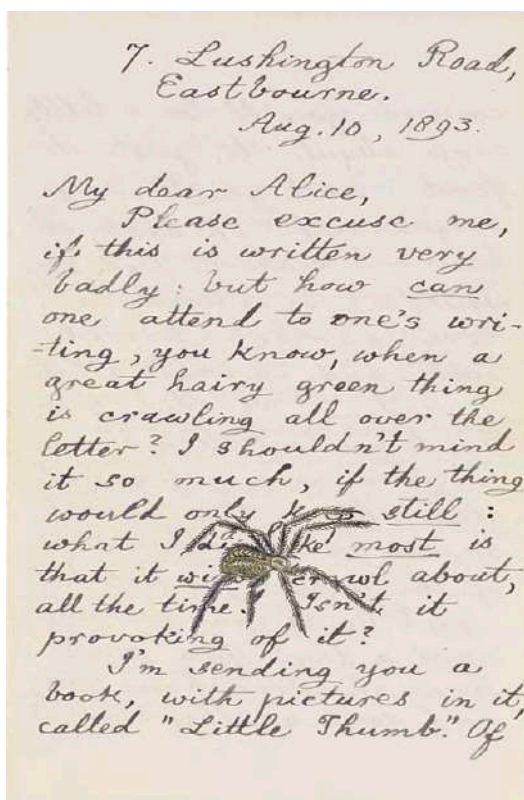 7. Lushington Road,
Eastbourne.
Aug. 10, 1893.
My dear Alice,
Please excuse me,
if this is written very
badly: but how can
one attend to one's wri-
-ting, you know, when a
great hairy green thing
is crawling all over the
letter? I shouldn't mind
it so much, if the thing
would only still:
what I most is
that it crawl about,
all the time! Isn't it
provoking of it?
I'm sending you a
book, with pictures in it,
called "Little Thumb". Of